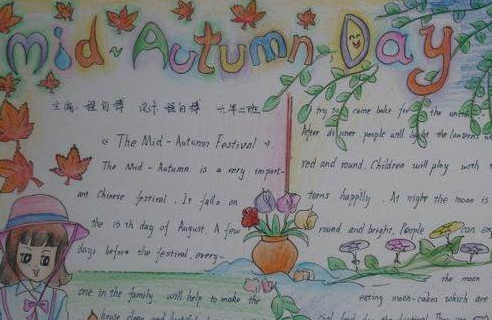 mid-Autumn Day
主编:程自博 设计:程自博 六年二班
« The Mid-Autumn Festival »
The Mid-Autumn is a very import-
ant Chinese festival. It falls on
the 15th day of August. A few
days before the festival, every-
one in the family will help to make the
house clean and
try to come bake for the
After dinner people will light the lanterns
red and round. Children will play with
terns happily. At night the moon is
round and bright. People can
the moon
eating moon-cakes which are